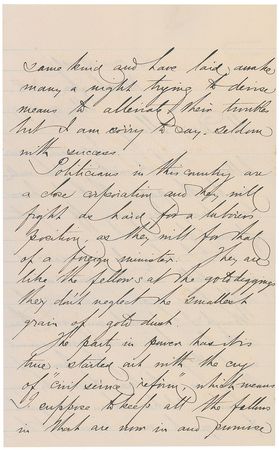 same kind and have laid awake
many a night trying to devise
means to alleviate their troubles
but I am sorry to say, seldom
with success.
Politicians in this country are
a close corporation and they will
fight as hard for a laborers
position, as they will for that
of a foreign minister. They are
like the fellows at the gold diggings
they don't neglect the smallest
grain of gold dust.
The party in power has its
time, started out with the cry
of "civil service reform", which means
I suppose to keep all the fellows
in that are now in and promise